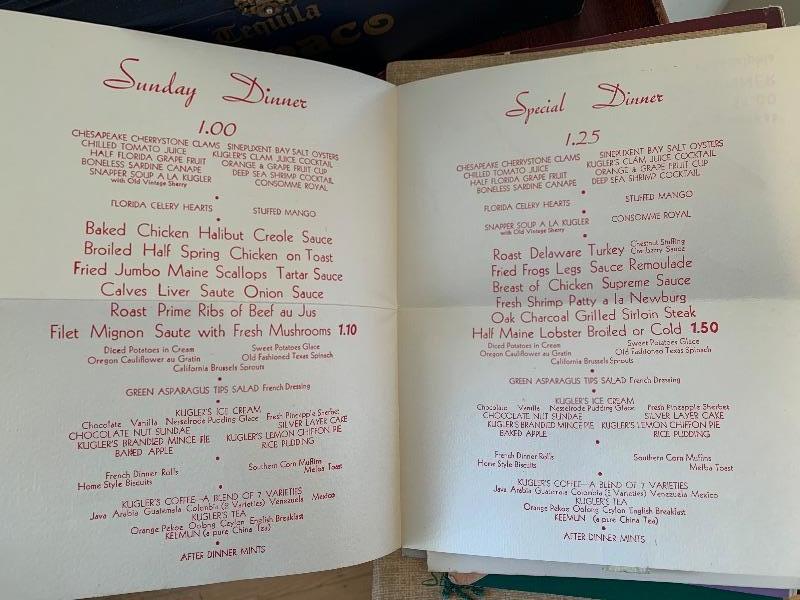 Tequila
Sunday Dinner
1.00
CHESAPEAKE CHERRYSTONE CLAMS SINEPUXENT BAY SALT OYSTERS
CHILLED TOMATO JUICE KUGLER'S CLAM JUICE COCKTAIL
HALF FLORIDA GRAPE FRUIT ORANGE & GRAPE FRUIT CUP
BONELESS SARDINE CANAPE DEEP SEA SHRIMP COCKTAIL
SNAPPER SOUP A LA KUGLER CONSOMME ROYAL
with Old Vintage Sherry
FLORIDA CELERY HEARTS STUFFED MANGO
Baked Chicken Halibut Creole Sauce
Broiled Half Spring Chicken on Toast
Fried Jumbo Maine Scallops Tartar Sauce
Calves Liver Saute Onion Sauce
Roast Prime Ribs of Beef au Jus
Filet Mignon Saute with Fresh Mushrooms 1.10
Diced Potatoes in Cream Sweet Potatoes Glace
Oregon Cauliflower au Gratin Old Fashioned Texas Spinach
California Brussels Sprouts
GREEN ASPARAGUS TIPS SALAD French Dressing
KUGLER'S ICE CREAM
Chocolate Vanilla Nesselrode Pudding Glace Fresh Pineapple Sherbet
CHOCOLATE NUT SUNDAE SILVER LAYER CAKE
KUGLER'S BRANDIED MINCE PIE KUGLER'S LEMON CHIFFON PIE
BAKED APPLE RICE PUDDING
French Dinner Rolls Southern Corn Muffins
Home Style Biscuits Melba Toast
KUGLER'S COFFEE—A BLEND OF 7 VARIETIES
Java Arabia Guatemala Colombia (2 Varieties) Venezuela Mexico
KUGLER'S TEA
Orange Pekoe Oolong Ceylon English Breakfast
KELMUN (a pure China Tea)
AFTER DINNER MINTS
Special Dinner
1.25
CHESAPEAKE CHERRYSTONE CLAMS SINEPUXENT BAY SALT OYSTERS
CHILLED TOMATO JUICE KUGLER'S CLAM JUICE COCKTAIL
HALF FLORIDA GRAPE FRUIT ORANGE & GRAPE FRUIT CUP
BONELESS SARDINE CANAPE DEEP SEA SHRIMP COCKTAIL
FLORIDA CELERY HEARTS STUFFED MANGO
SNAPPER SOUP A LA KUGLER CONSOMME ROYAL
with Old Vintage Sherry
Roast Delaware Turkey Chestnut Stuffing
Cranberry Sauce
Fried Frogs Legs Sauce Remoulade
Breast of Chicken Supreme Sauce
Fresh Shrimp Patty a la Newburg
Oak Charcoal Grilled Sirloin Steak
Half Maine Lobster Broiled or Cold 1.50
Diced Potatoes in Cream Sweet Potatoes Glace
Oregon Cauliflower au Gratin Old Fashioned Texas Spinach
California Brussels Sprouts
GREEN ASPARAGUS TIPS SALAD French Dressing
KUGLER'S ICE CREAM
Chocolate Vanilla Nesselrode Pudding Glace Fresh Pineapple Sherbet
CHOCOLATE NUT SUNDAE SILVER LAYER CAKE
KUGLER'S BRANDIED MINCE PIE KUGLER'S LEMON CHIFFON PIE
BAKED APPLE RICE PUDDING
French Dinner Rolls Southern Corn Muffins
Home Style Biscuits Melba Toast
KUGLER'S COFFEE—A BLEND OF 7 VARIETIES
Java Arabia Guatemala Colombia (2 Varieties) Venezuela Mexico
KUGLER'S TEA
Orange Pekoe Oolong Ceylon English Breakfast
KEEMUN (a pure China Tea)
AFTER DINNER MINTS